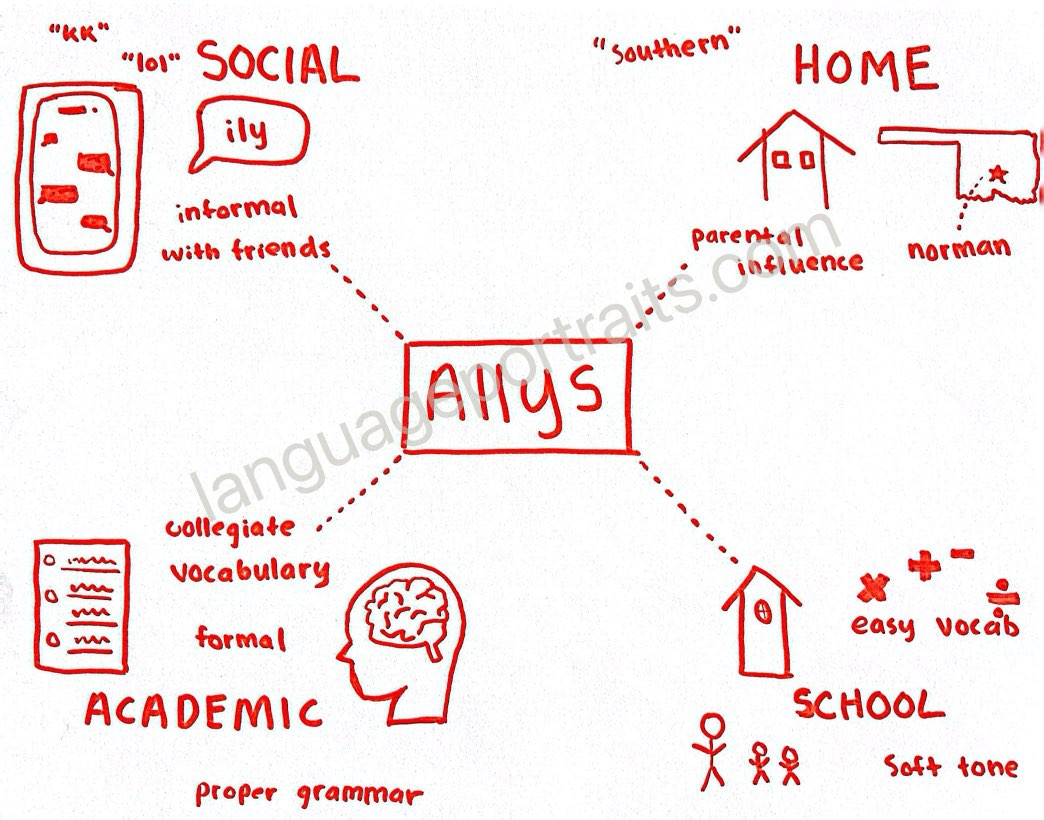 "KK"
"lol" SOCIAL
ily
informal
with friends
"Southern"
HOME
parental
influence
norman
Allys
collegiate
vocabulary
formal
ACADEMIC
proper grammar
easy vocab
SCHOOL
Soft tone
languageportraits.com